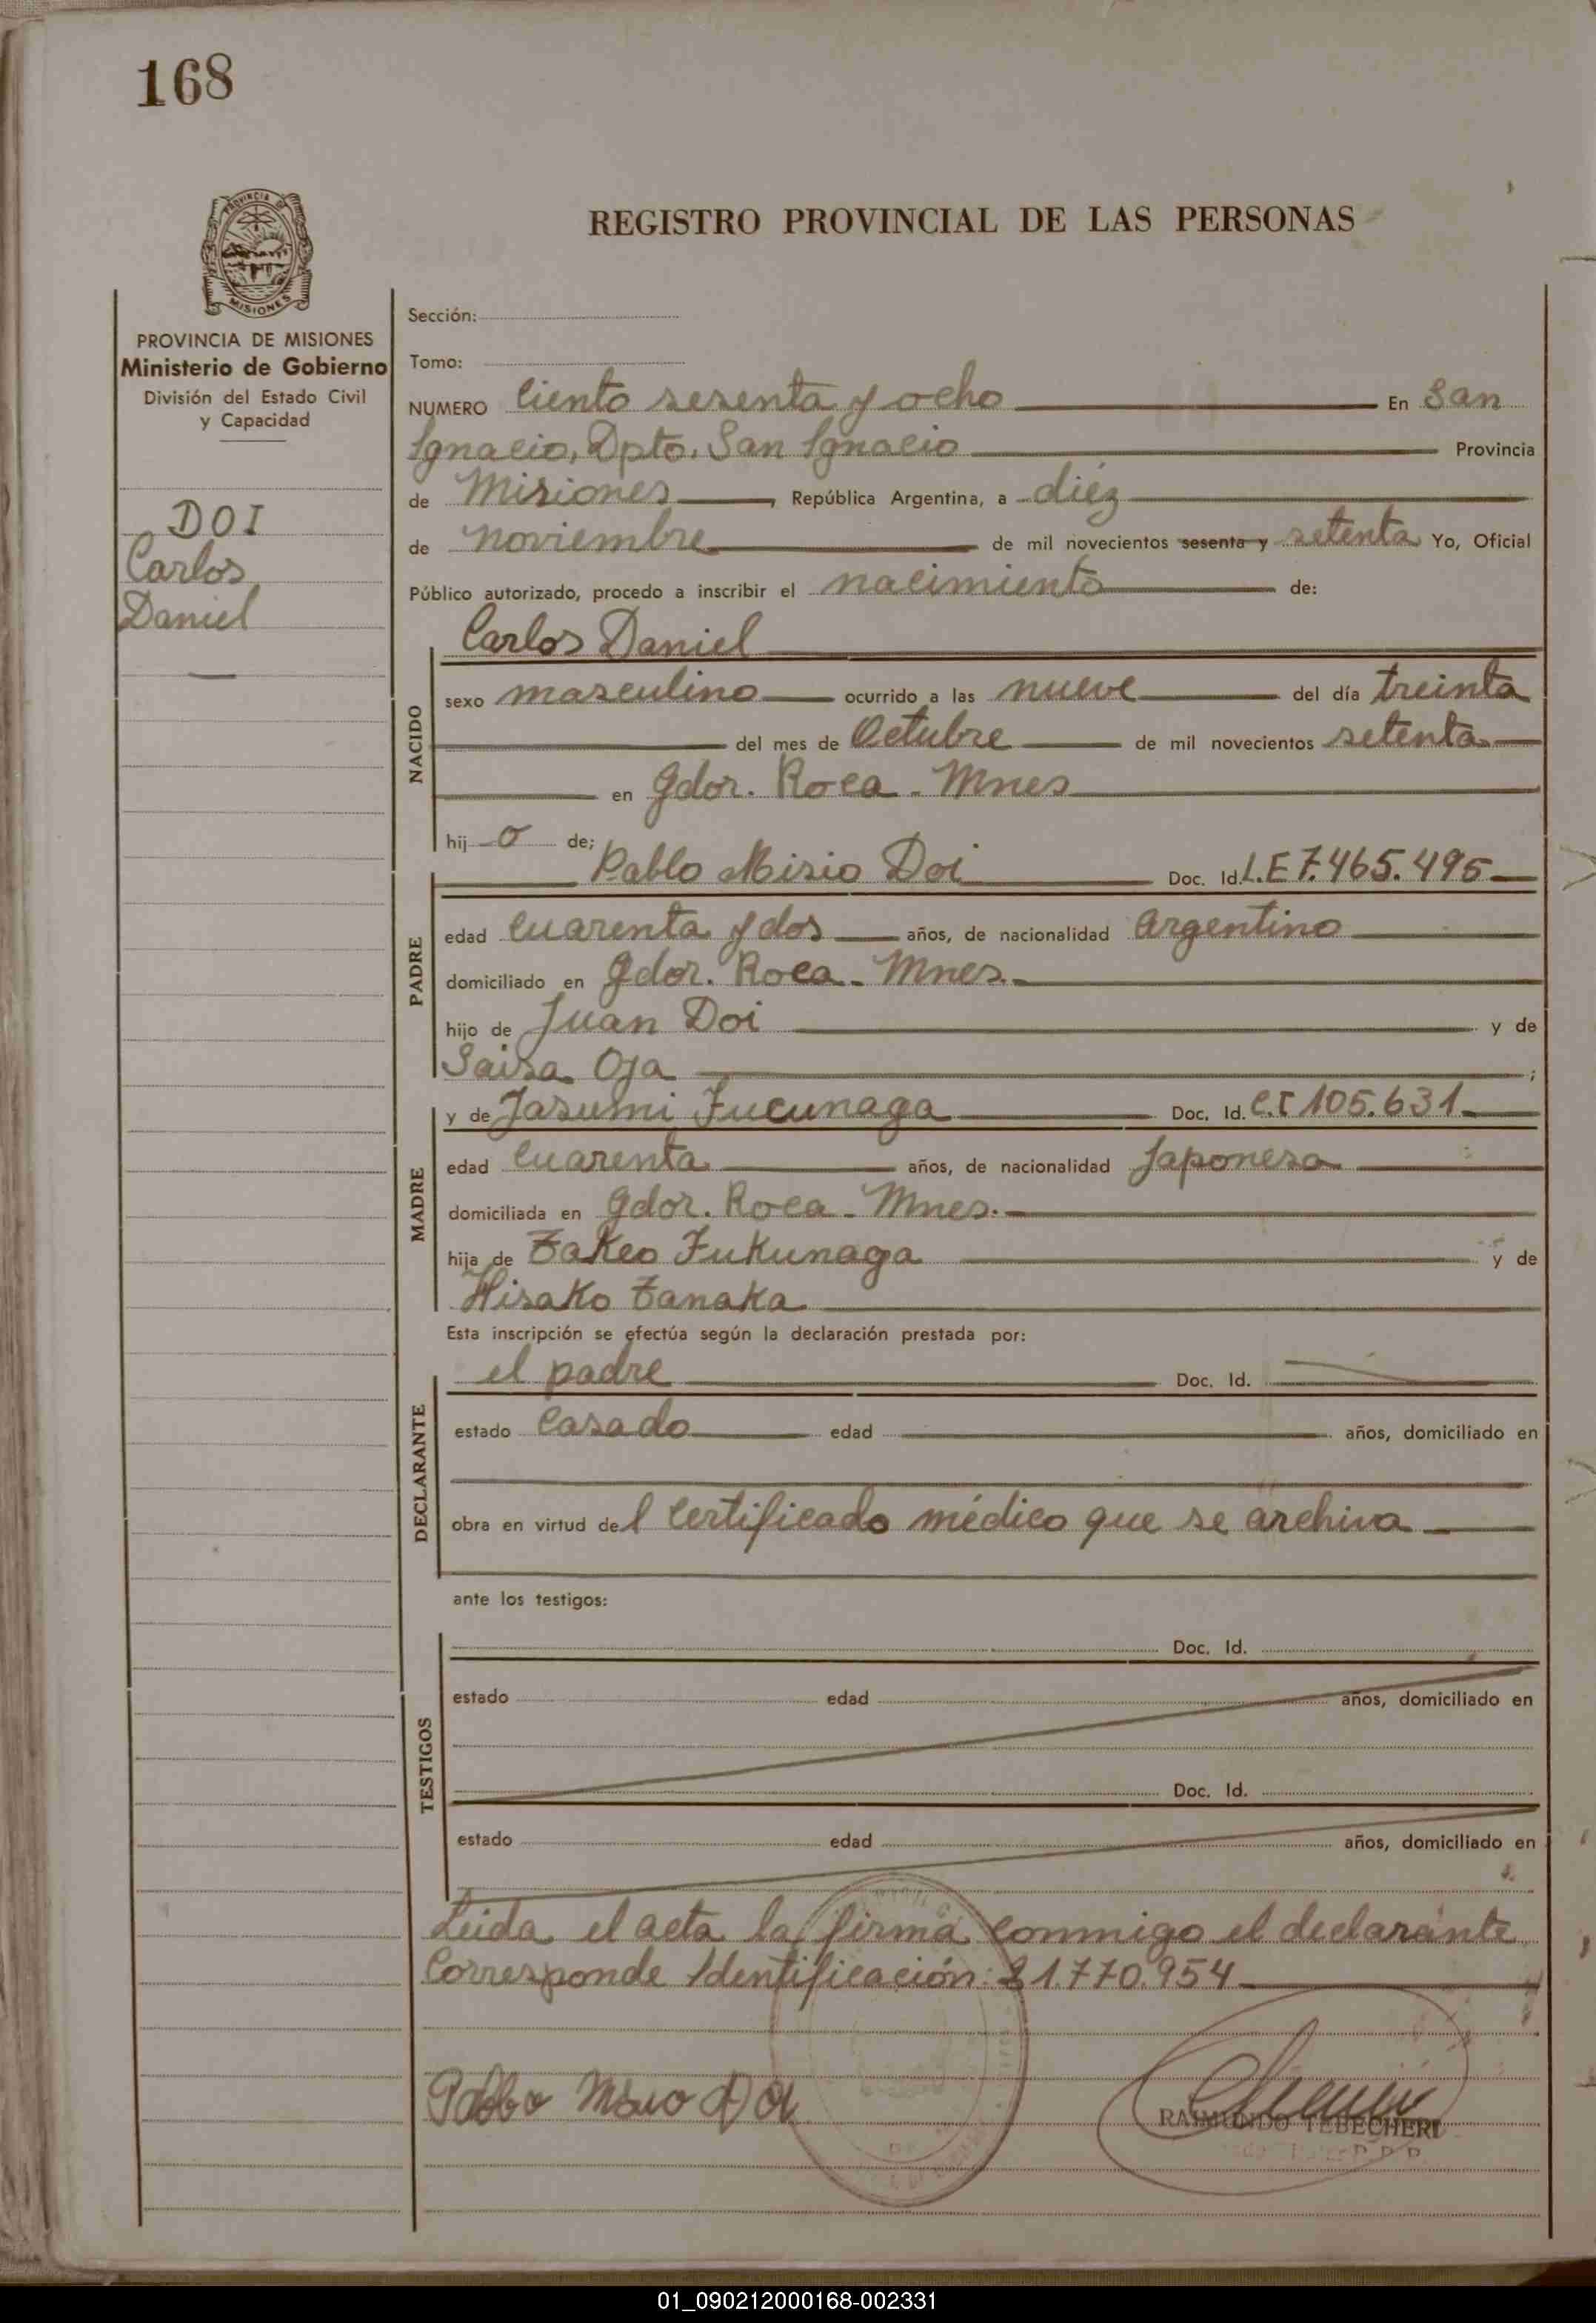 168
PROVINCIA DE
MISIONES
REGISTRO PROVINCIAL DE LAS PERSONAS
PROVINCIA DE MISIONES
Ministerio de Gobierno
División del Estado Civil
y Capacidad
DOI
Carlos
Daniel
Sección:
Tomo:
NUMERO Ciento sesenta y ocho En San
Ignacio, Dpto. San Ignacio Provincia
de Misiones, República Argentina, a diéz
de noviembre de mil novecientos sesenta y setenta Yo, Oficial
Público autorizado, procedo a inscribir el nacimiento de:
NACIDO
Carlos Daniel
sexo masculino ocurrido a las nueve del día treinta
del mes de Octubre de mil novecientos setenta
en Gdor. Roca - Mnes
hij o de;
PADRE
Pablo Misio Doi Doc. Id. L.E 7.465.495
edad cuarenta y dos años, de nacionalidad Argentino
domiciliado en Gdor. Roca - Mnes.
hijo de Juan Doi y de
Saisa Oja ;
MADRE
y de Jasumi Fucunaga Doc. Id. C.I 105.631
edad cuarenta años, de nacionalidad Japonesa
domiciliada en Gdor. Roca - Mnes.
hija de Takeo Fukunaga y de
Hisako Tanaka
Esta inscripción se efectúa según la declaración prestada por:
DECLARANTE
el padre Doc. Id.
estado Casado edad años, domiciliado en
obra en virtud del Certificado médico que se archiva
ante los testigos:
TESTIGOS
Doc. Id.
estado edad años, domiciliado en
Doc. Id.
estado edad años, domiciliado en
Leida el acta la firma conmigo el declarante
Corresponde Identificación: 21.770.954
Pablo Misio Doi
RAIMUNDO TEBECHERI
01_090212000168-002331